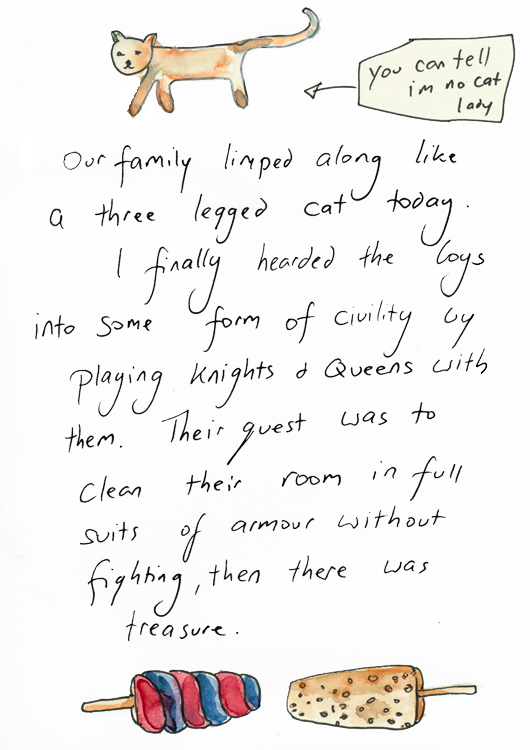 you can tell
im no cat
lady
Our family limped along like
a three legged cat today.
I finally hearded the boys
into some form of civility by
playing Knights & Queens with
them. Their quest was to
clean their room in full
suits of armour without
fighting, then there was
treasure.